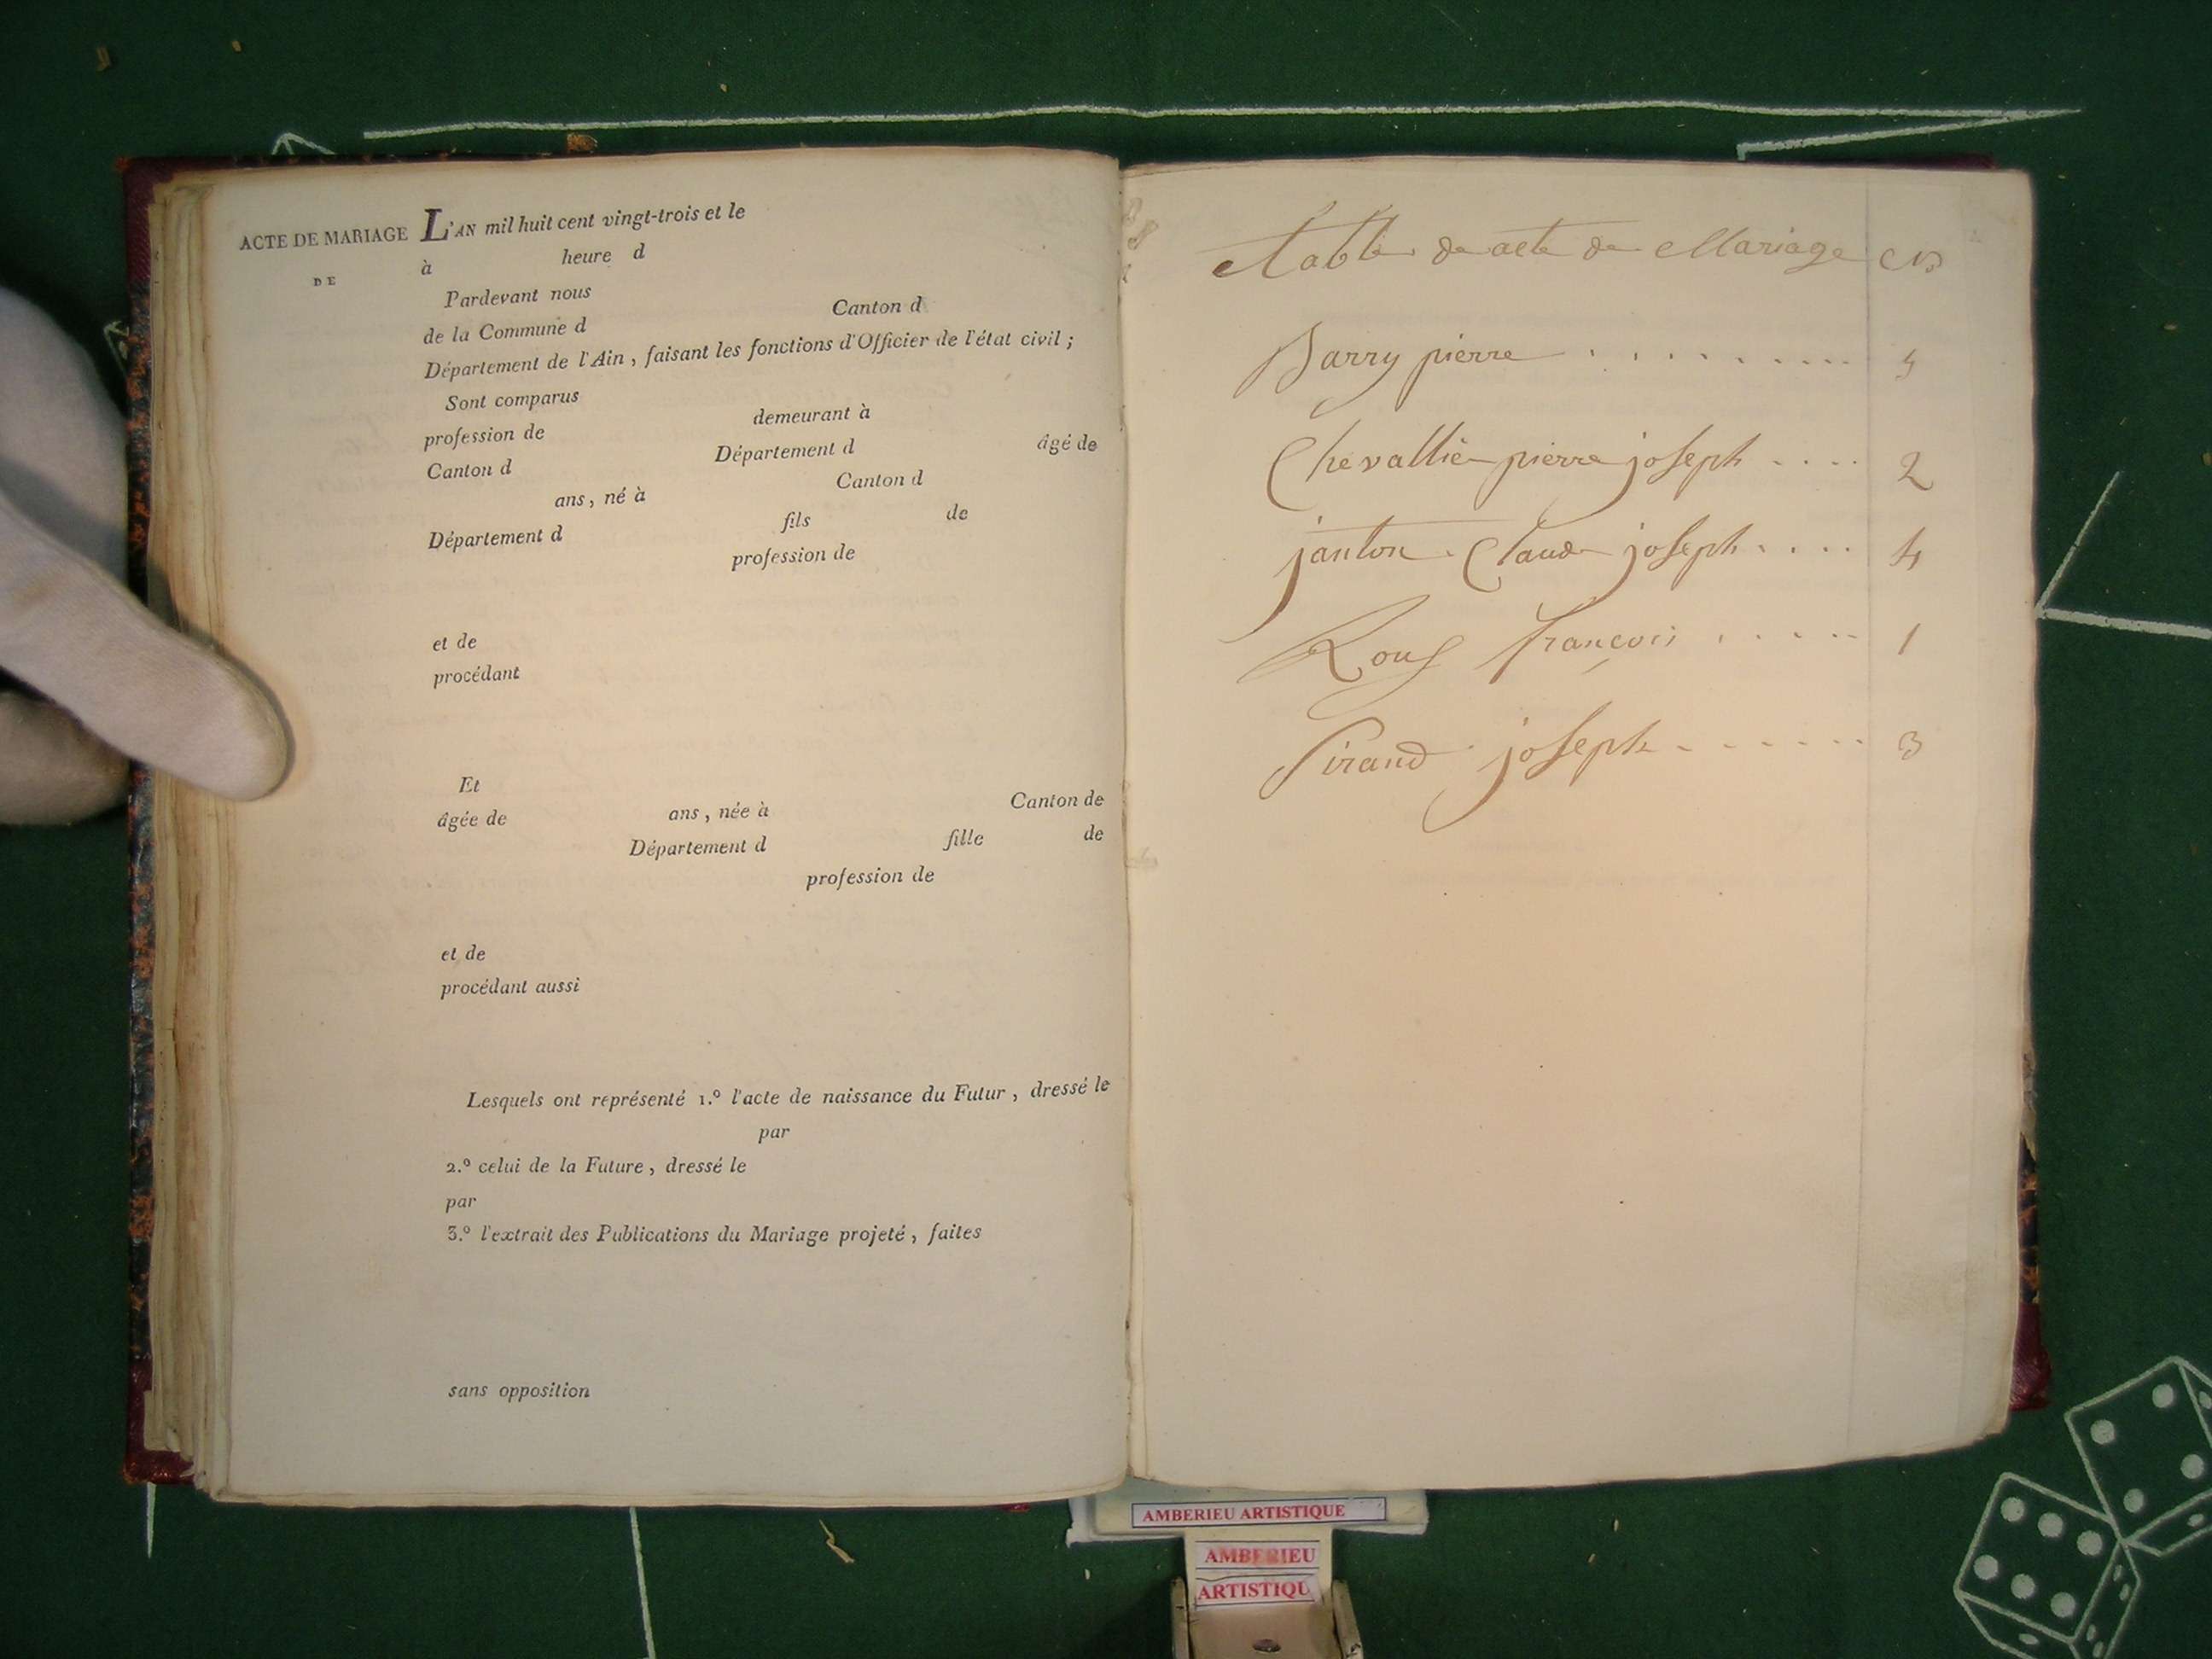 ACTE DE MARIAGE L'AN mil huit cent vingt-trois et le
DE à heure d
Pardevant nous
de la Commune d Canton d
Département de l'Ain, faisant les fonctions d'Officier de l'état civil;
Sont comparus
profession de demeurant à
Canton d Département d âgé de
ans, né à Canton d
Département d fils de
profession de
et de
procédant
Et
âgée de ans, née à Canton de
Département d fille de
profession de
et de
procédant aussi
Lesquels ont représenté 1.º l'acte de naissance du Futur, dressé le
par
2.º celui de la Future, dressé le
par
3.º l'extrait des Publications du Mariage projeté, faites
sans opposition
table de acte de Mariage
Barry pierre . . . . . . . . . . 5
Chevallier pierre joseph . . . . 2
janton Claude joseph . . . . 4
Roux françois . . . . . 1
Sirand joseph . . . . . . 3
AMBERIEU ARTISTIQUE
AMBERIEU
ARTISTIQU